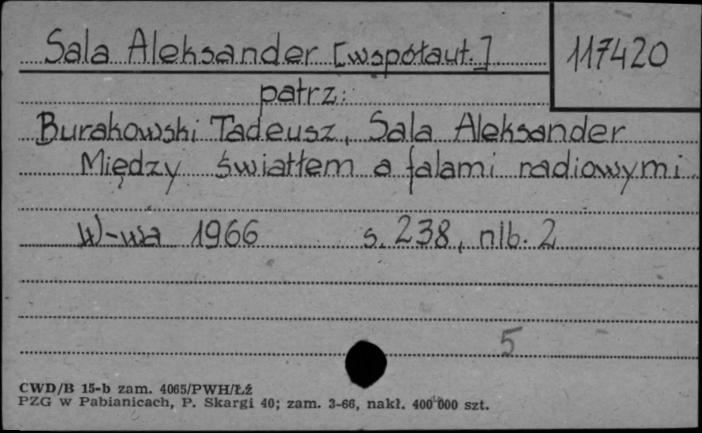 Sala Aleksander [współaut.] 117420
patrz:
Burakowski Tadeusz, Sala Aleksander
Między światłem a falami radiowymi
W-wa 1966 s. 238, nlb. 2
5
CWD/B 15-b zam. 4065/PWH/Łź
PZG w Pabianicach, P. Skargi 40; zam. 3-66, nakł. 400 000 szt.